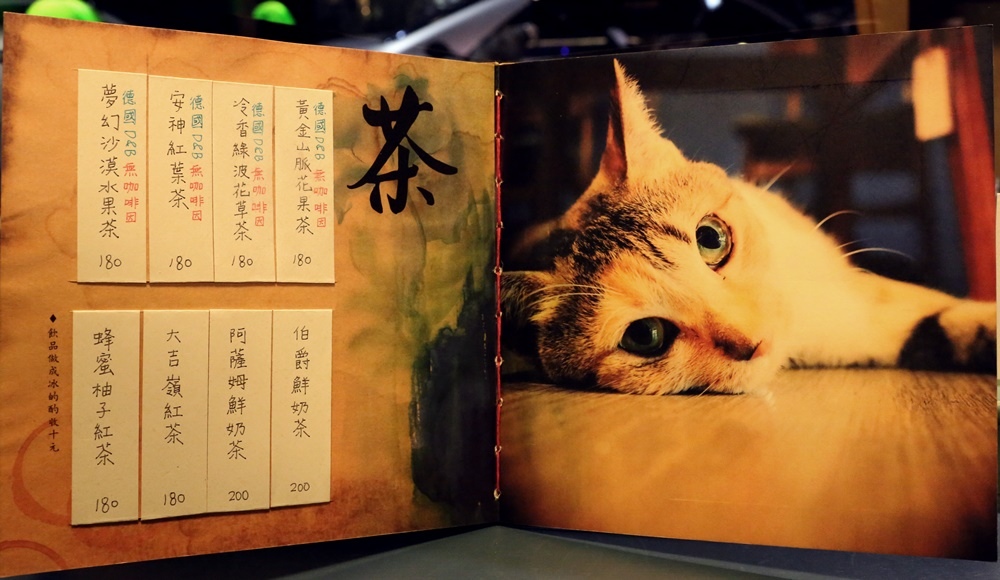 茶
德國D&B 無咖啡因
黃金山脈花果茶
180
德國D&B 無咖啡因
冷香綠波花草茶
180
德國D&B 無咖啡因
安神紅葉茶
180
德國D&B 無咖啡因
夢幻沙漠水果茶
180
伯爵鮮奶茶
200
阿薩姆鮮奶茶
200
大吉嶺紅茶
180
蜂蜜柚子紅茶
180
◆飲品做成冰的酌收十元